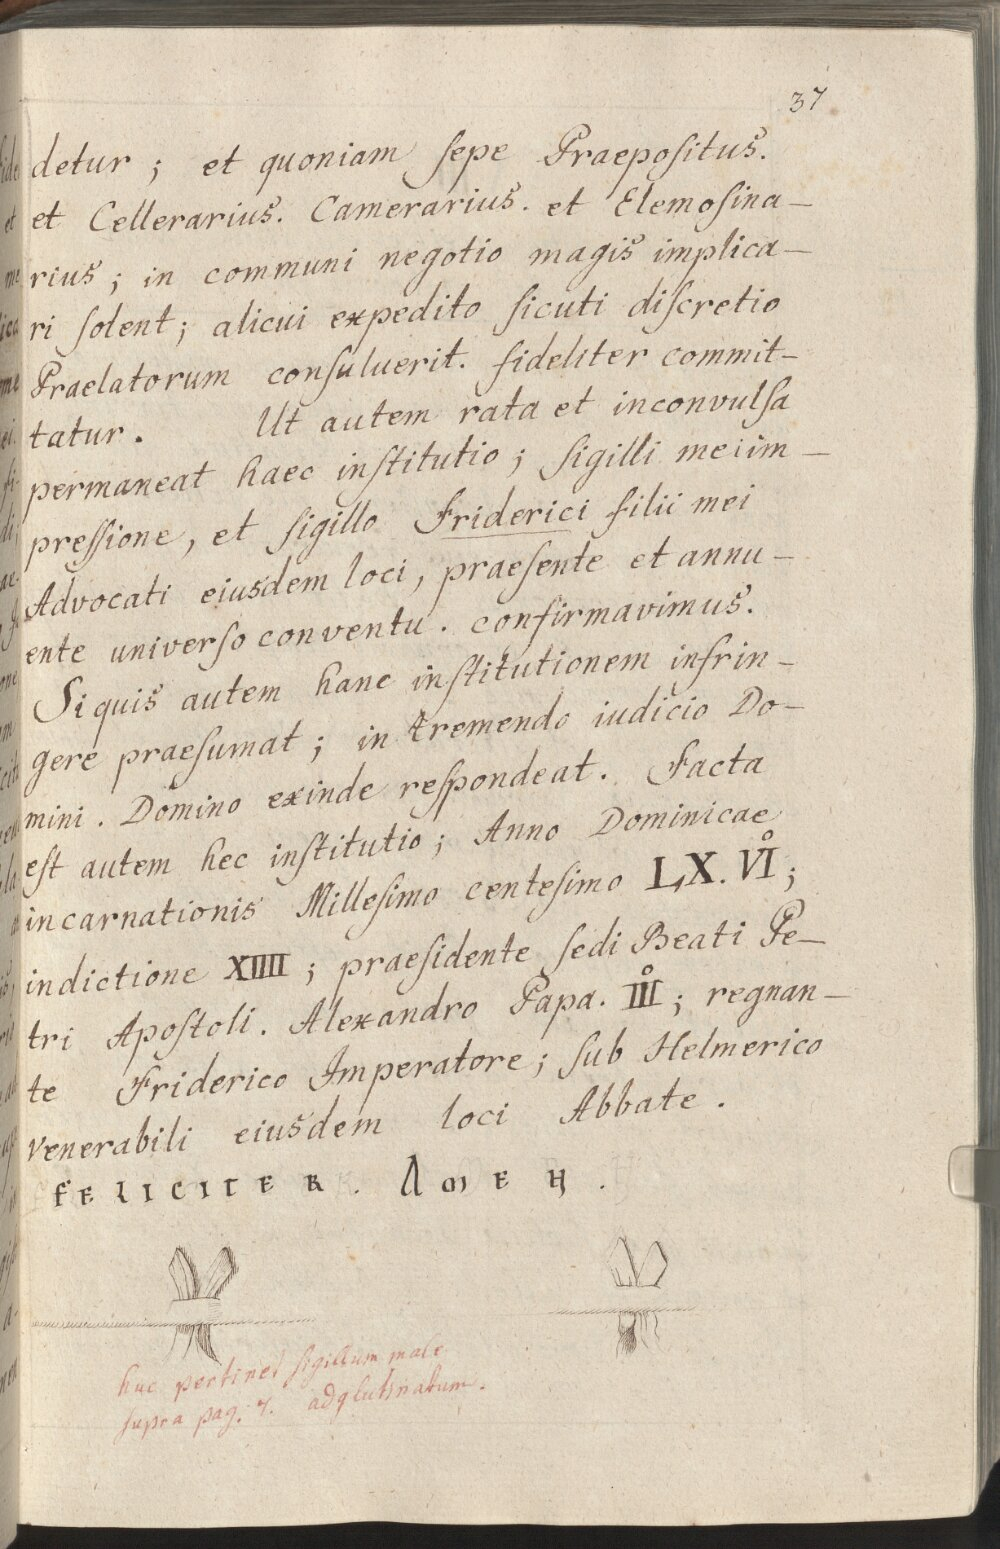 37
detur ; et quoniam sepe Praepositus.
et Cellerarius. Camerarius. et Elemosina–
rius ; in communi negotio magis implica–
ri solent ; alicui expedito sicuti discretio
Praelatorum consuluerit. fideliter commit–
tatur. Ut autem rata et inconvulsa
permaneat haec institutio ; sigilli mei im–
pressione, et sigillo Friderici filii mei
Advocati eiusdem loci, praesente et annu–
ente universo conventu. confirmavimus.
Si quis autem hanc institutionem infrin–
gere praesumat ; in tremendo iudicio Do–
mini. Domino exinde respondeat. Facta
est autem hec institutio ; Anno Dominicae
incarnationis Millesimo centesimo LX. VI̊ ;
indictione XIIII ; praesidente sedi Beati Pe–
tri Apostoli. Alexandro Papa. III̊ ; regnan–
te Friderico Imperatore ; sub Helmerico
venerabili eiusdem loci Abbate.
FELICITER. AMEN.
huc pertinet sigillum male
supra pag. 7. adglutinatum.